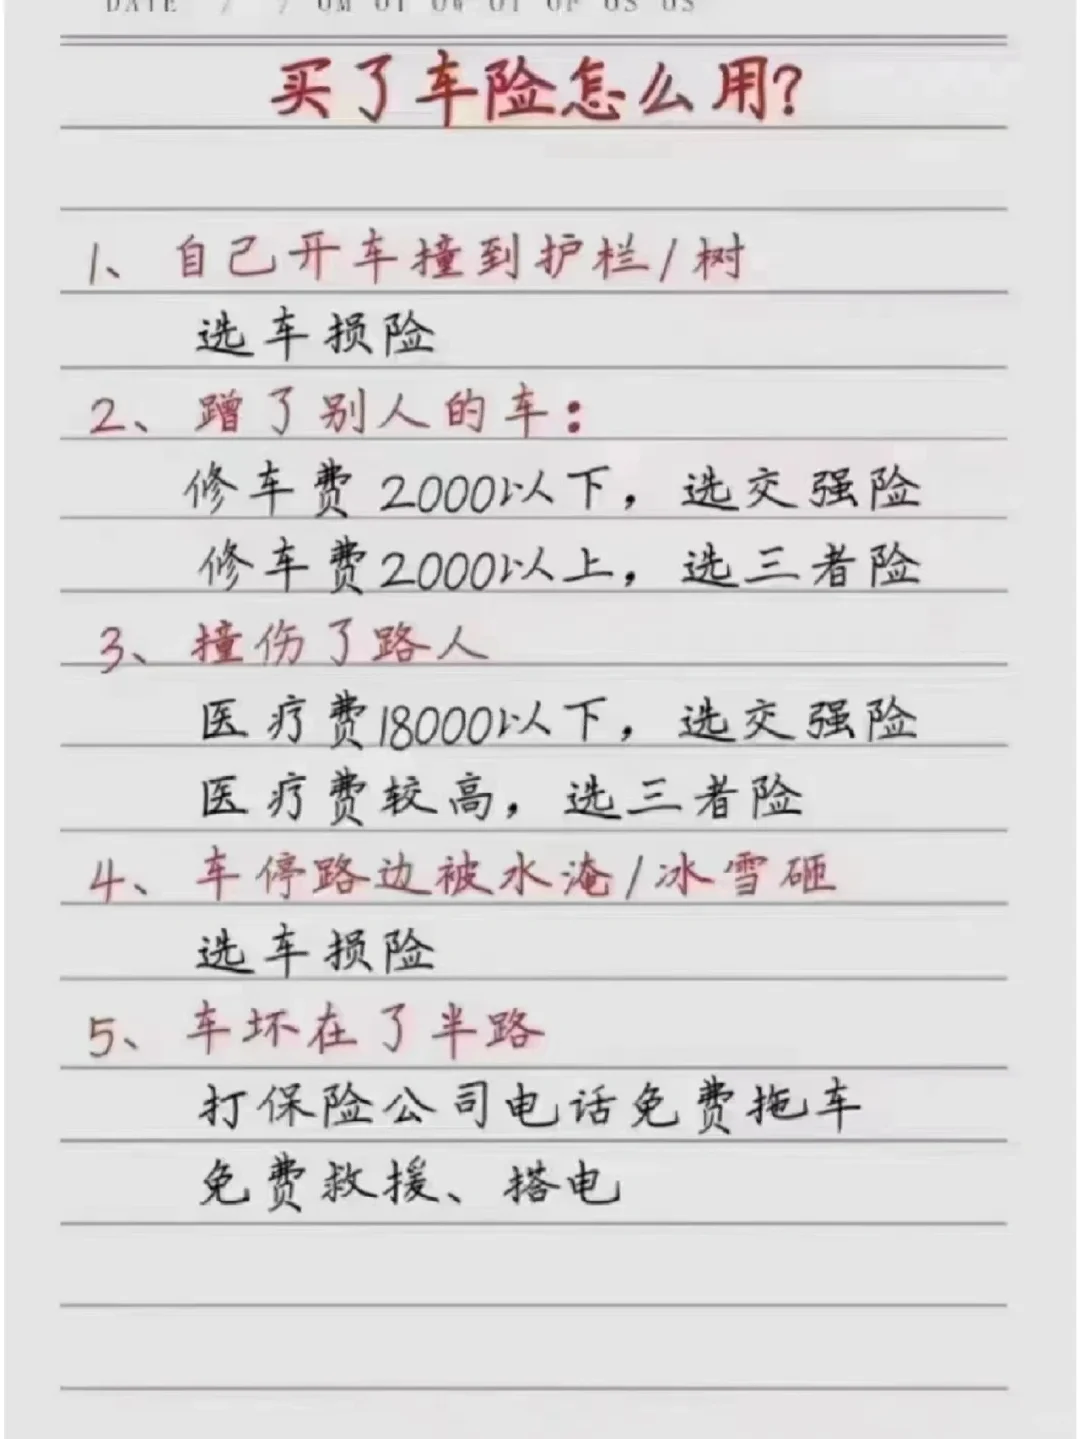 DATE / /
买了车险怎么用?
1、自己开车撞到护栏/树
选车损险
2、蹭了别人的车:
修车费2000以下，选交强险
修车费2000以上，选三者险
3、撞伤了路人
医疗费18000以下，选交强险
医疗费较高，选三者险
4、车停路边被水淹/冰雪砸
选车损险
5、车坏在了半路
打保险公司电话免费拖车
免费救援、搭电